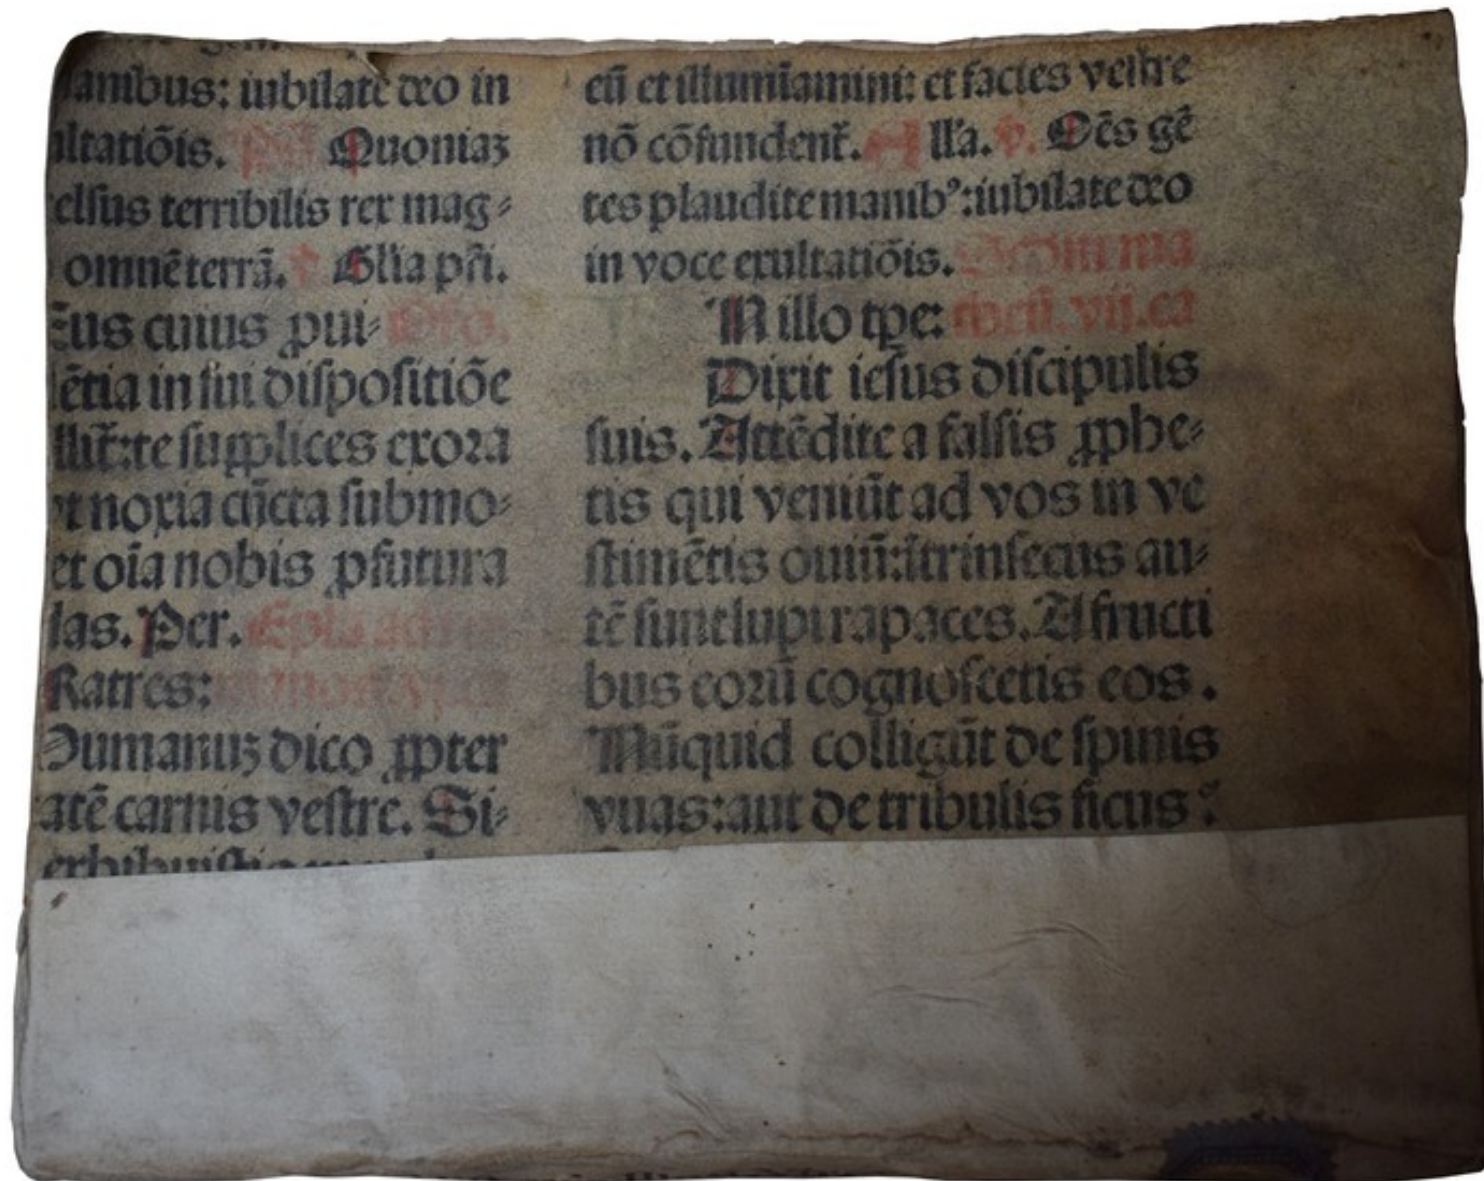 anibus: iubilate deo in
ltatiõis. Quoniaꝫ
elsus terribilis rex mag⸗
omnẽ terrã. ℣ Glia pr̃i.
eus cuius ꝓui⸗ Oro.
ẽtia in sui dispositiõe
llit̃: te supplices exora
vt noxia cũcta submo⸗
et oĩa nobis ꝓfutura
das. Per. Epla ad
Ratres:
Humanuꝫ dico ꝓpter
atẽ carnis vestre. Si⸗
eũ et illumĩamini: et facies vestre
nõ cõfundent̃. Alla. v. Oẽs gẽ
tes plaudite manibꝰ: iubilate deo
in voce exultatiõis. Scðm ma
IN illo tꝑe: theũ. vij. ca
Dixit iesus discipulis
suis. Attẽdite a falsis ꝓphe⸗
tis qui veniũt ad vos in ve
stimẽtis ouiũ: ĩtrinsecus au⸗
tẽ sunt lupi rapaces. A fructi
bus eorũ cognoscetis eos.
Nũquid colligũt de spinis
vuas: aut de tribulis ficus?